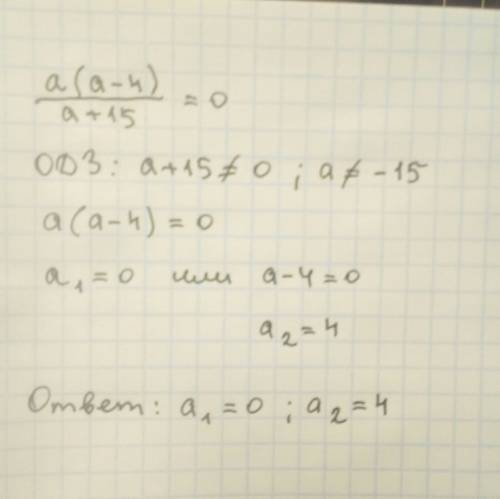 a(a-4)/a+15 = 0
ОДЗ: a+15≠0 ; a≠-15
a(a-4)=0
a₁=0 или a-4=0
a₂=4
Ответ: a₁=0 ; a₂=4